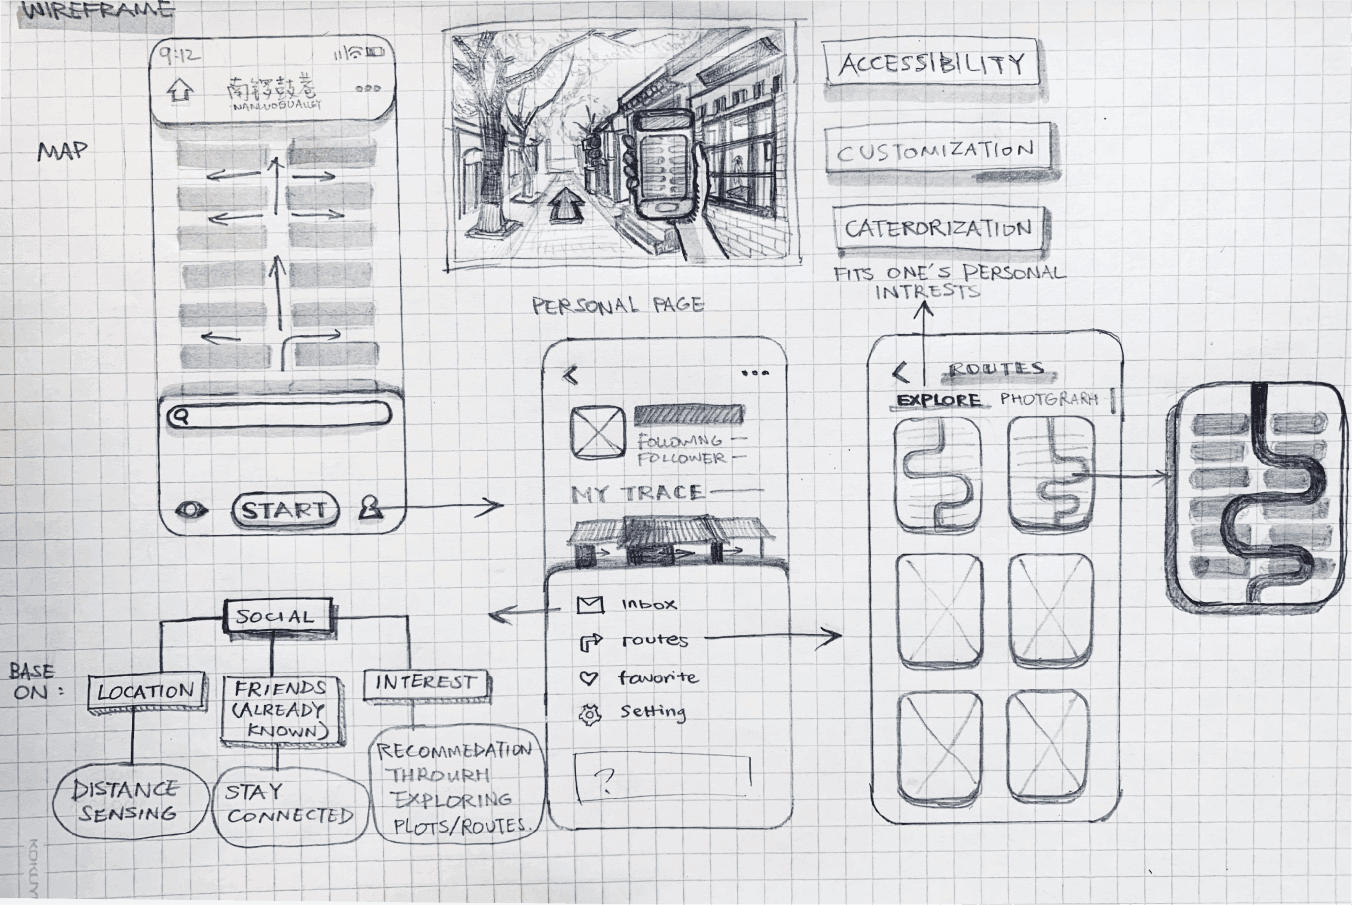 WIREFRAME
9:12
南锣鼓巷
NANLUOGU ALLEY
MAP
START
ACCESSIBILITY
CUSTOMIZATION
CATERORIZATION
FITS ONE'S PERSONAL
INTRESTS
PERSONAL PAGE
FOLLOWING
FOLLOWER
MY TRACE
Inbox
routes
favorite
Setting
?
ROUTES
EXPLORE PHOTGRAPH
SOCIAL
BASE
ON :
LOCATION
FRIENDS
(ALREADY
KNOWN)
INTEREST
DISTANCE
SENSING
STAY
CONNECTED
RECOMMEDATION
THROURH
EXPLORING
PLOTS/ROUTES.
KOKUY